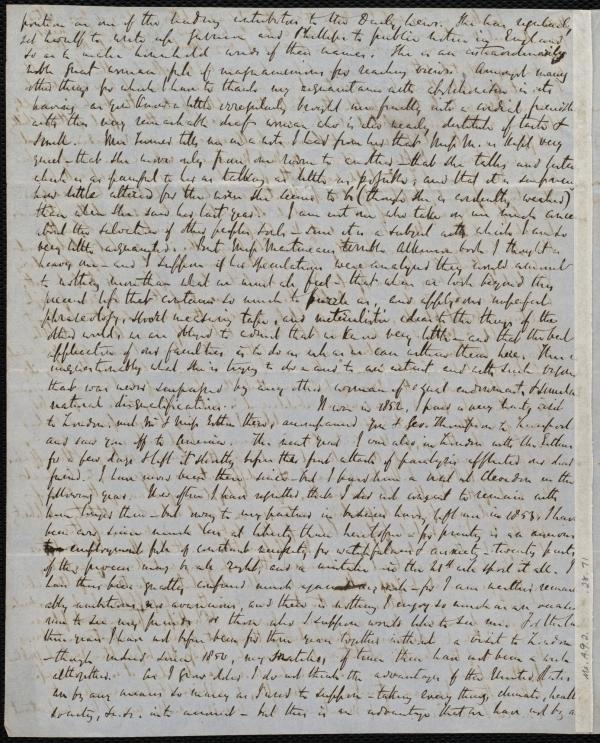 position as one of the leading contributors to the Daily News. She has regularly
set herself to write up Garrison and Phillips to public notice in England
so as to make household words of their names. She is an extraordinarily
noble great woman full of magnanimous far reaching views. Amongst many
other things for which I have to thank my acquaintance with abolitionism is its
having as you know a little irregularly brought me finally into a cordial friendship
with this very remarkable deaf woman who is also nearly destitute of taste &
smell. Mrs Turner tells me in a note I had from her that Miss M. is kept very
quiet - that she moves only from one room to another - that she talks and listens
which is as painful to her as talking as little as possible, and that it is surprising
how little altered for the worse she seems to be (though she is evidently weaker)
than when she saw her last year. I am not one who take on me much care
about the salvation of other people's souls - since it is a subject with which I am so
very little acquainted. But Miss Martineau's terrible Atkinson book I thought a
heavy one - and I suppose if her speculations were analysed they would amount
to nothing more than what we must all feel - that when we look beyond this
present life that contains so much to puzzle us, and apply our imperfect
phraseology, short measuring tape, and materialistic ideas to the things of the
other world, we are obliged to admit that we know very little - and that the best
application of our faculties is to do as much as we can with them here. This is
unquestionably what she is trying to do and to an extent and with such vigour
that was never surpassed by any other woman of equal endowment, & similar
natural disqualifications. It was in 1852, I paid a very hasty visit
to London, met Mr & Miss Estlin there, accompanied you & Geo. Thompson to Liverpool
and saw you off to America. The next year I was also in London with the Estlins
for a few days & left it shortly before the first attack of paralysis afflicted our dear
friend. I have never been there since - but I paid him a visit at Clevedon in the
following year. How often I have regretted that I did not consent to remain with
him longer then - but owing to my partner in business having left me in 1853, I have
been ever since much less at liberty than heretofore - for printing is an anxious
employment full of constant necessity for watchfulness and anxiety - twenty parts
of the process may be all right and a mistake in the 21st will spoil it all. I
have thus been greatly confined much against my wish - for I am neither remark-
ably ambitious nor avaricious, and there is nothing I enjoy so much as an occasion
now to see my friends or those who I suppose would like to see me. For the last
three years I have not before been for three years together without a visit to London
- though indeed since 1850, my snatches of time there have not been a week
altogether. As I grow older I do not think the advantages of the United States
are by any means so many as I used to suppose - taking every thing, climate, health
society, &c. &c. into account - but this is an advantage that we have not by a
Ms. A.9.2. 28. 71